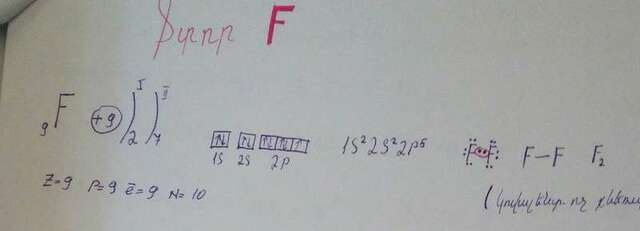 Ֆտոր F
₉F +9 ) ) I II
2 7
1S 2S 2P
1S²2S²2P⁵
F F F–F F₂
Z=9 P=9 ē=9 N=10
(կովալենտ. ոչ բևեռայ